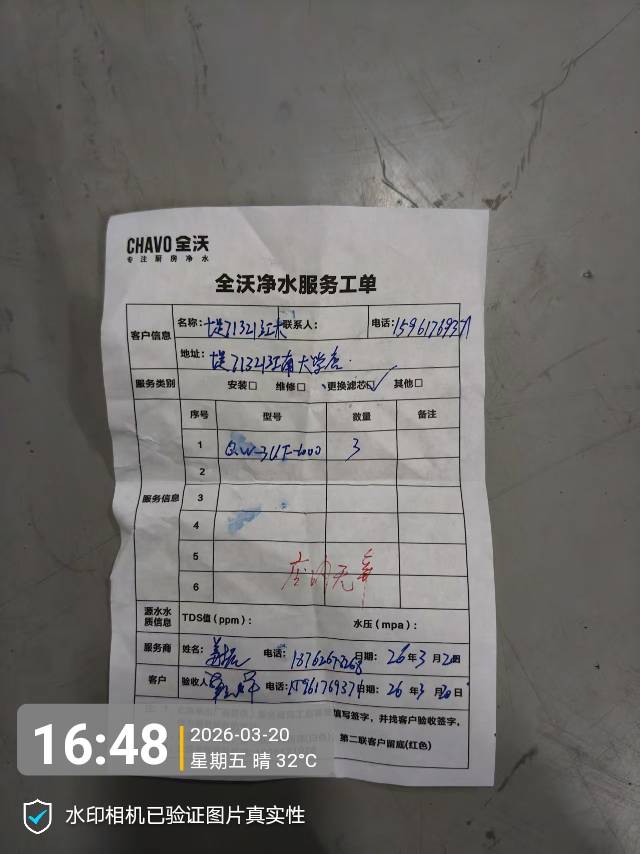 CHAVO 全沃
专注厨房净水
全沃净水服务工单
客户信息 名称: 71321江大 联系人: 电话: 15961769371
地址: 71321江南大学店
服务类别 安装□ 维修□ 更换滤芯☑ 其他□
序号 型号 数量 备注
服务信息
1 QW-3UF-1000 3
2
3
4
5 店内无章
6
源水水质信息 TDS值(ppm): 水压(mpa):
服务商 姓名: 电话: 日期: 26年3月20日
客户 验收人 电话: 15961769371 日期: 26年3月20日
填写签字,并找客户验收签字,
第二联客户留底(红色)
16:48 2026-03-20
星期五 晴 32°C
水印相机已验证图片真实性